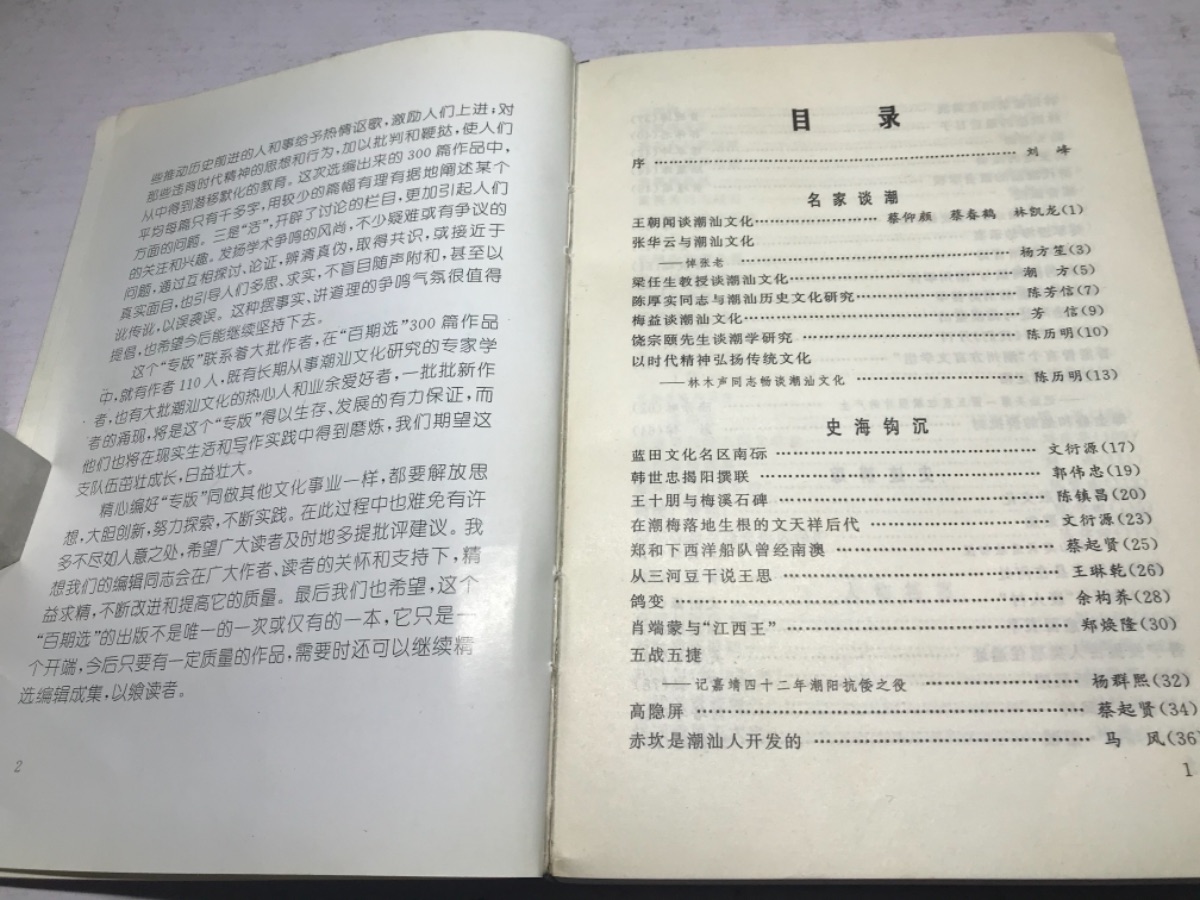 些推动历史前进的人和事给予热情讴歌，激励人们上进；对
那些违商时代精神的思想和行为，加以批判和鞭挞，使人们
从中得到潜移默化的教育。这次选编出来的300篇作品中，
平均每篇只有千多字，用较少的篇幅有理有据地阐述某个
方面的问题。三是“活”，开辟了讨论的栏目，更加引起人们
的关注和兴趣。发扬学术争鸣的风尚，不少疑难或有争议的
问题，通过互相探讨、论证，辨清真伪，取得共识，或接近于
真实面目，也引导人们多思、求实，不盲目随声附和，甚至以
讹传讹，以误袭误。这种摆事实、讲道理的争鸣气氛很值得
提倡，也希望今后能继续坚持下去。
这个“专版”联系着大批作者，在“百期选”300篇作品
中，就有作者110人，既有长期从事潮汕文化研究的专家学
者，也有大批潮汕文化的热心人和业余爱好者，一批批新作
者的涌现，将是这个“专版”得以生存、发展的有力保证，而
他们也将在现实生活和写作实践中得到磨炼，我们期望这
支队伍茁壮成长，日益壮大。
精心编好“专版”同做其他文化事业一样，都要解放思
想，大胆创新，努力探索，不断实践。在此过程中也难免有许
多不尽如人意之处，希望广大读者及时地多提批评建议。我
想我们的编辑同志会在广大作者、读者的关怀和支持下，精
益求精，不断改进和提高它的质量。最后我们也希望，这个
“百期选”的出版不是唯一的一次或仅有的一本，它只是一
个开端，今后只要有一定质量的作品，需要时还可以继续精
选编辑成集，以飨读者。
2
目 录
序……………………………………刘 峰
名家谈潮
王朝闻谈潮汕文化…………蔡仰颜 蔡春鹤 林凯龙(1)
张华云与潮汕文化
——悼张老……………………………杨方笙(3)
梁任生教授谈潮汕文化……………………潮 方(5)
陈厚实同志与潮汕历史文化研究……………陈芳信(7)
梅益谈潮汕文化……………………………芳 信(9)
饶宗颐先生谈潮学研究……………………陈历明(10)
以时代精神弘扬传统文化
——林木声同志畅谈潮汕文化……………陈历明(13)
史海钩沉
蓝田文化名区南砾……………………文衍源(17)
韩世忠揭阳撰联……………………郭伟忠(19)
王十朋与梅溪石碑……………………陈镇昌(20)
在潮梅落地生根的文天祥后代……………文衍源(23)
郑和下西洋船队曾经南澳………………蔡起贤(25)
从三河豆干说王思……………………王琳乾(26)
鸽变……………………………余构养(28)
肖端蒙与“江西王”……………………郑焕隆(30)
五战五捷
——记嘉靖四十二年潮阳抗倭之役…………杨群熙(32)
高隐屏……………………………蔡起贤(34)
赤坎是潮汕人开发的……………………马 风(36)
1